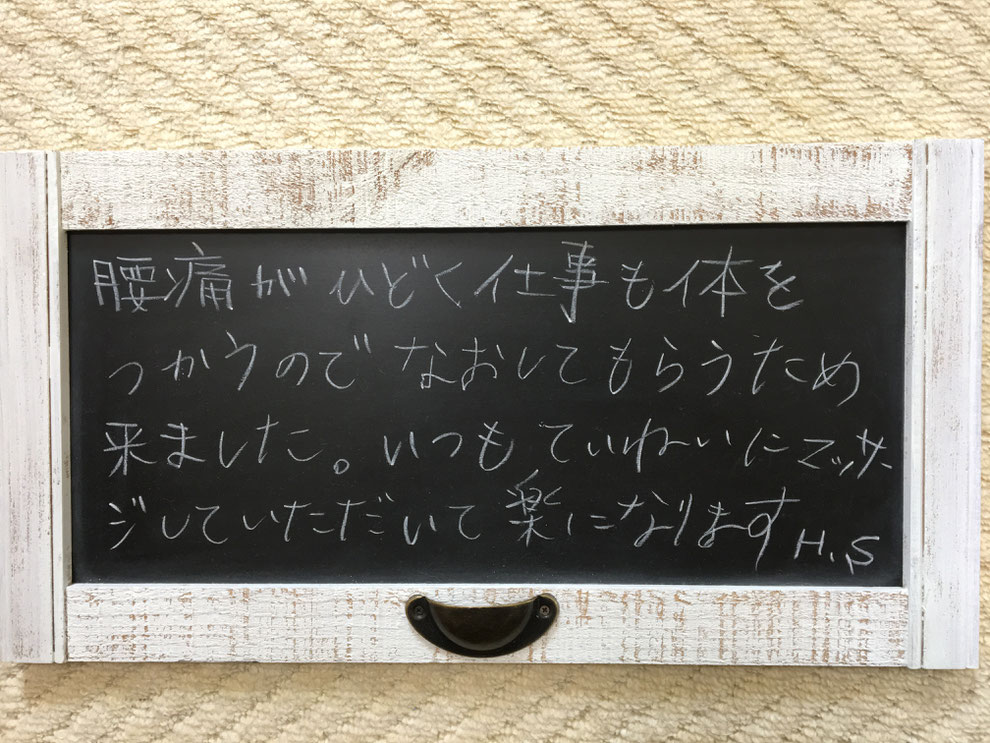 腰痛がひどく仕事も体を
つかうのでなおしてもらうため
来ました。いつもていねいにマッサー
ジしていただいて楽になります H.S